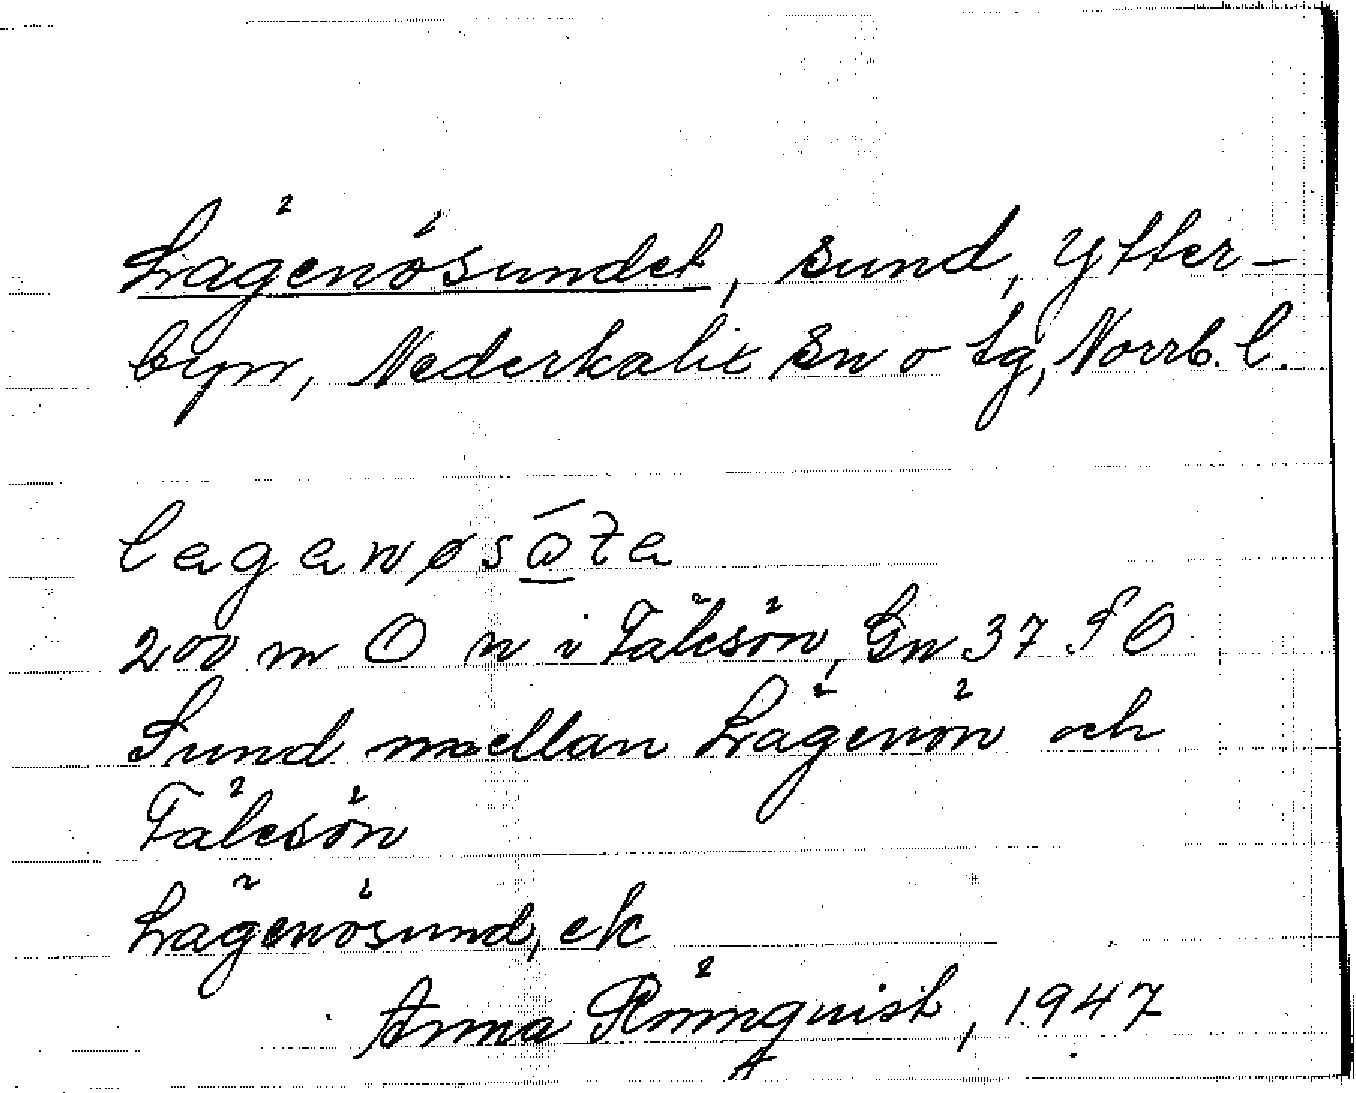 Lägenösundet, sund, Ytter-
byn, Nederkalix sn o tg, Norrb. l.
200 m O n i Tälcsön, Gn 37 SO
Sund mellan Lägenön och
Tälcsön
Lägenösund, ek
Anna Rönnquist, 1947